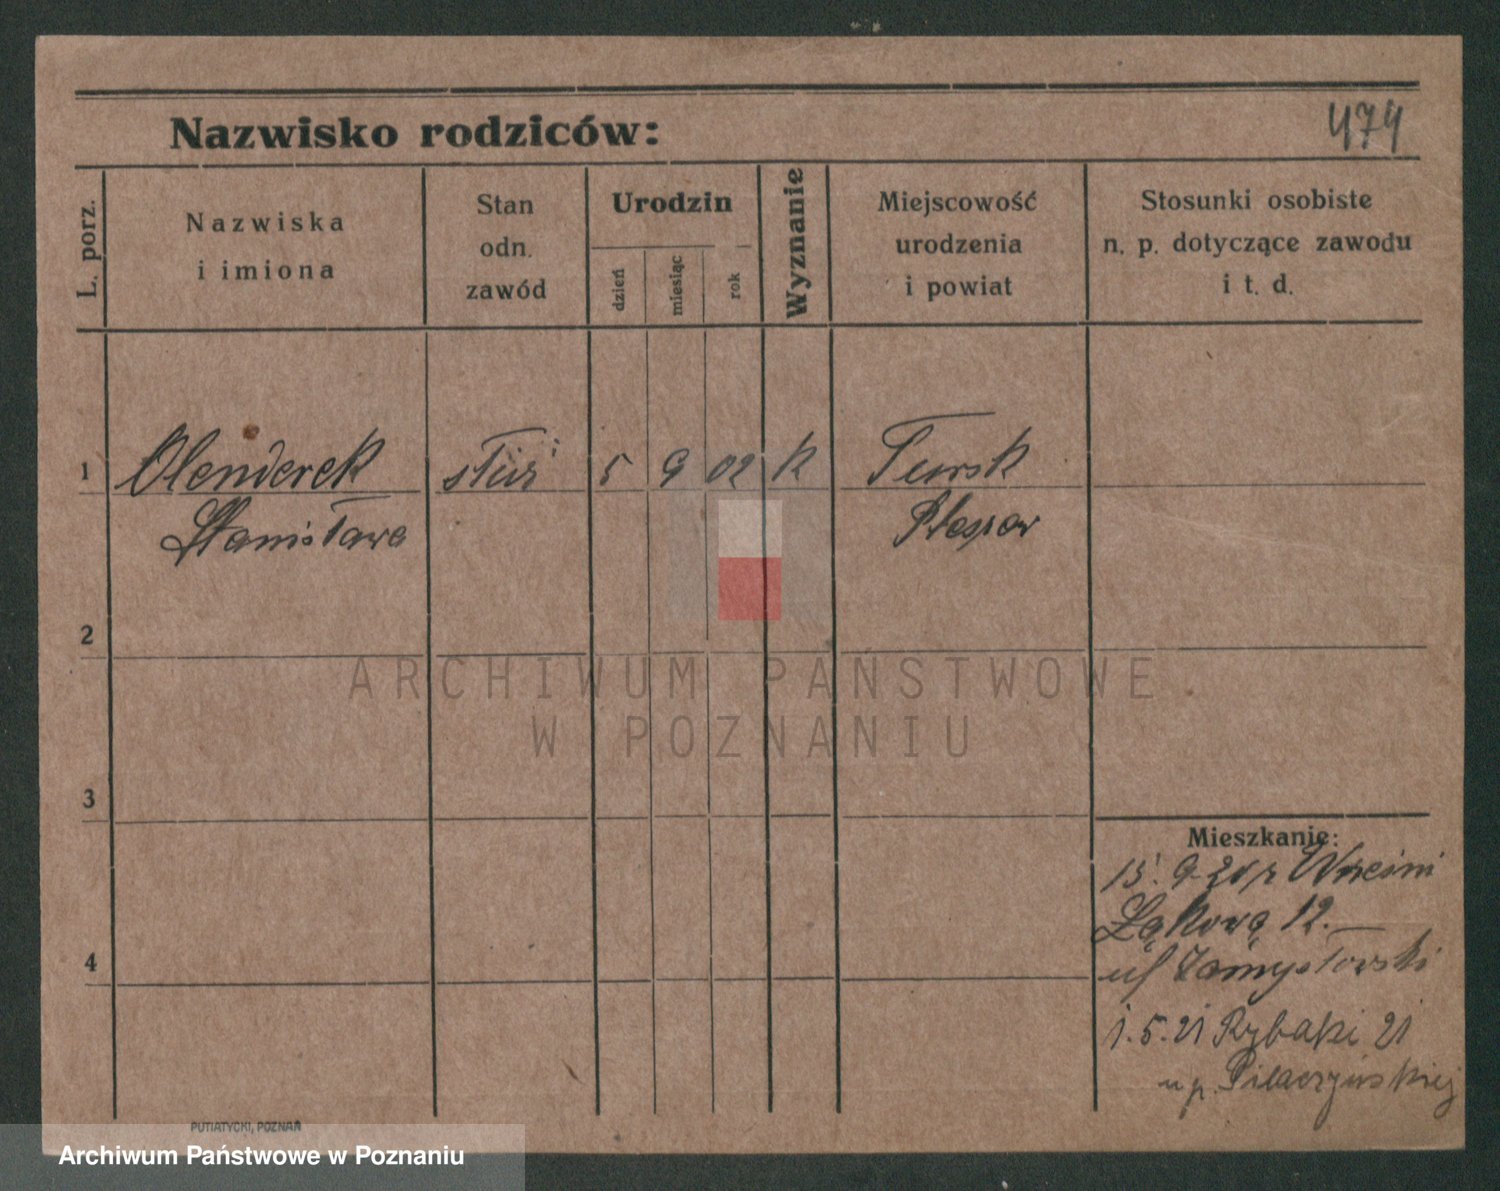 Nazwisko rodziców:
474
L. porz.
Nazwiska
i imiona
Stan
odn.
zawód
Urodzin
dzień
miesiąc
rok
Wyznanie
Miejscowość
urodzenia
i powiat
Stosunki osobiste
n. p. dotyczące zawodu
i t. d.
1
Olenderek
Stanisława
służ
5
9
02
k
Tursk
Pleszew
2
ARCHIWUM PAŃSTWOWE
W POZNANIU
3
Mieszkanie:
15. 9. 20 z Wrześni
Łąkowa 12.
4
1.5.21 Rybaki 21
PUTIATYCKI, POZNAŃ
Archiwum Państwowe w Poznaniu